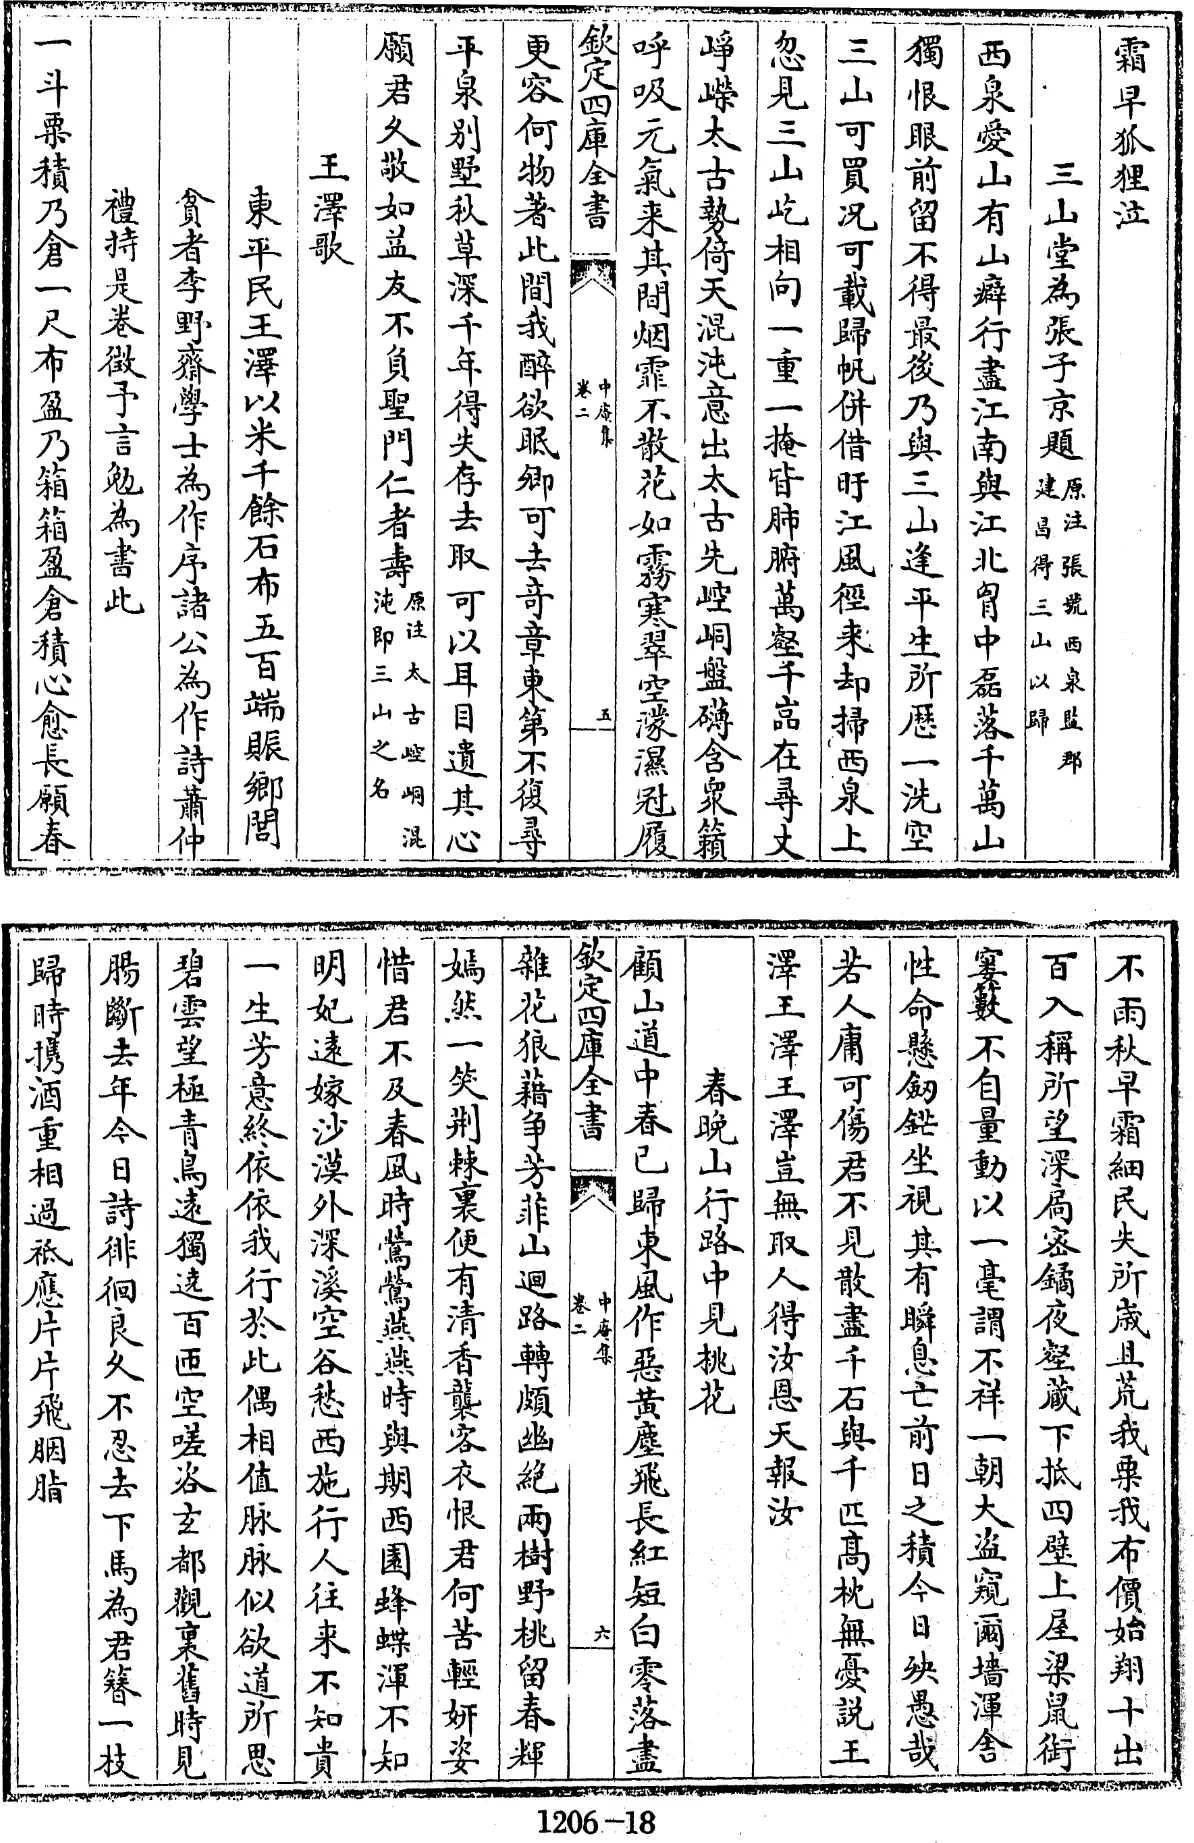 霜早狐狸泣
三山堂為張子京題原注張號西泉監郡建昌得三山以歸
西泉愛山有山癖行盡江南與江北胷中磊落千萬山
獨恨眼前留不得最後乃與三山逢平生所歴一洗空
三山可買况可載歸帆併借盱江風徑来却掃西泉上
忽見三山屹相向一重一掩皆肺腑萬壑千嵓在尋丈
崢嶸太古勢倚天混沌意出太古先崆峒盤礴含衆籟
呼吸元氣来其間烟霏不散花如霧寒翠空濛濕冠履
欽定四庫全書
中庵集
卷二
五
更容何物著此間我醉欲眠卿可去竒章東第不復尋
平泉别墅秋草深千年得失存去取可以耳目遺其心
願君久敬如益友不負聖門仁者壽原注太古崆峒混沌即三山之名
王澤歌
東平民王澤以米千餘石布五百端賑鄉閭
貧者李野齋學士為作序諸公為作詩蕭仲
禮持是卷徴予言勉為書此
一斗粟積乃倉一尺布盈乃箱箱盈倉積心愈長願春
不雨秋早霜細民失所歳且荒我粟我布價始翔十出
百入稱所望深扃宻鐍夜壑藏下抵四壁上屋梁鼠銜
窶藪不自量動以一毫謂不祥一朝大盜窺爾墻渾舎
性命懸釰鋩坐視其有瞬息亡前日之積今日殃愚哉
若人庸可傷君不見散盡千石與千匹髙枕無憂説王
澤王澤王澤豈無取人得汝恩天報汝
春晩山行路中見桃花
顧山道中春已歸東風作惡黄塵飛長紅短白零落盡
欽定四庫全書
中庵集
卷二
六
雜花狼藉争芳菲山迴路轉頗幽絶兩樹野桃留春輝
嫣然一笑荆棘裏便有清香襲客衣恨君何苦輕妍姿
惜君不及春風時鶯鶯燕燕時與期西園蜂蝶渾不知
明妃逺嫁沙漠外深溪空谷愁西施行人往来不知貴
一生芳意終依依我行於此偶相值脉脉似欲道所思
碧雲望極青鳥逺獨遶百匝空嗟咨玄都觀裏舊時見
腸斷去年今日詩徘徊良久不忍去下馬為君簮一枝
歸時携酒重相過祗應片片飛胭脂
1206-18